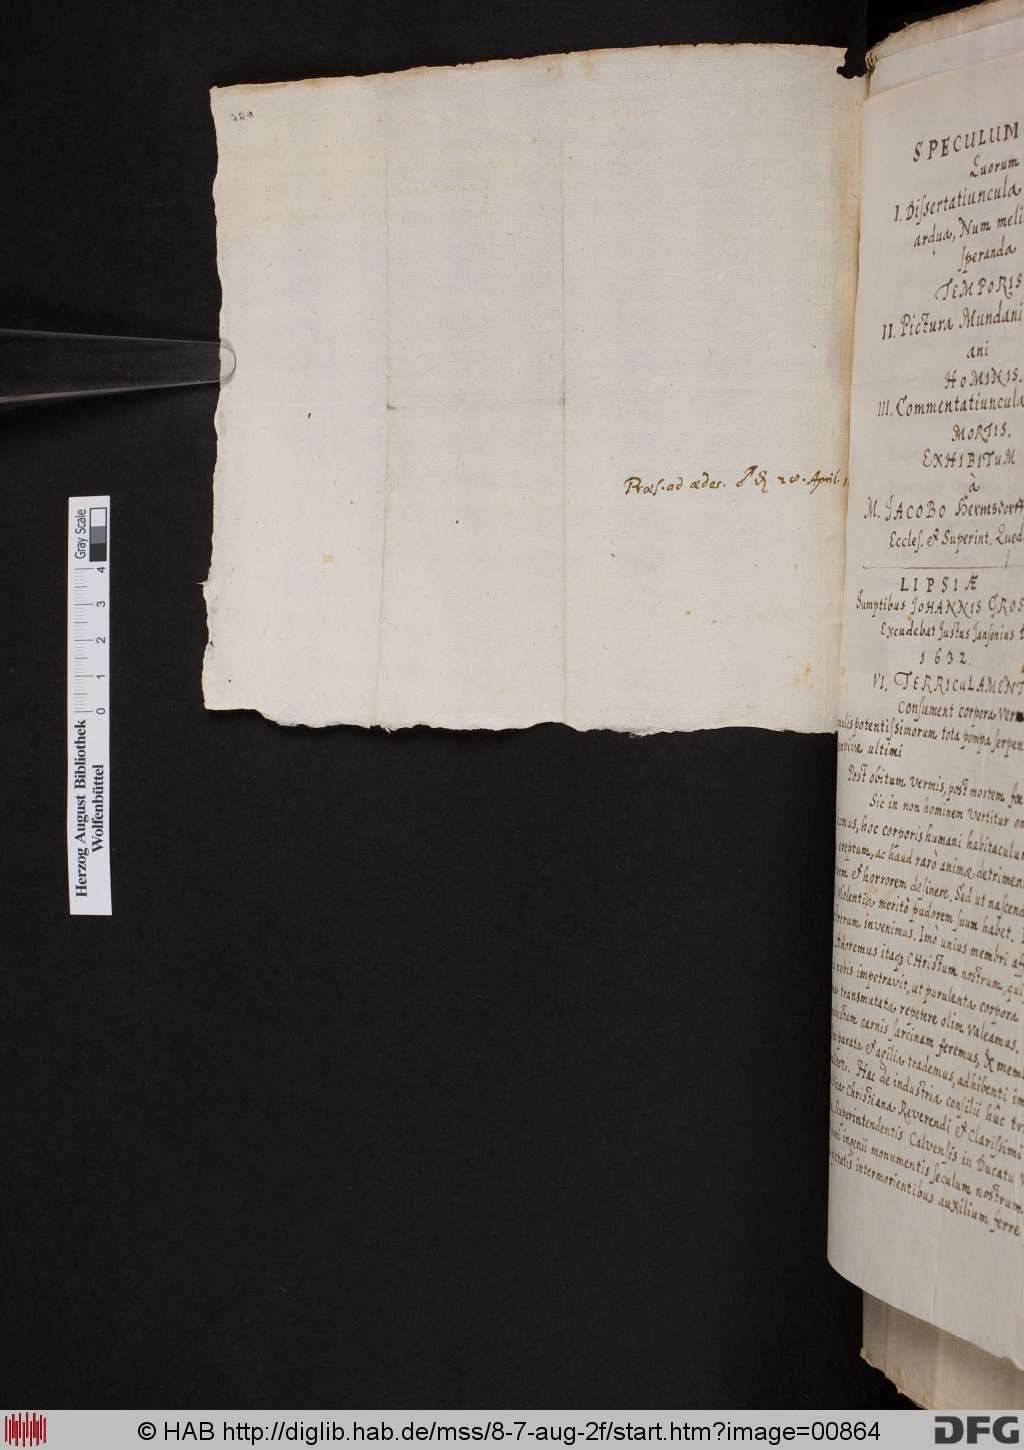 Præs. ad ædes. 28. April.
SPECULUM
Quorum
I. Dissertatiuncula
ardua, Num meli
speranda
TEMPORIS
II. Pictura Mundani
ani
HOMINIS.
III. Commentatiuncula
MORTIS.
EXHIBITUM
à
M. JACOBO Hermsdorff
Eccles. & Superint. Qued
LIPSIÆ
Sumptibus JOHANNIS GROS
Excudebat Justus Jansonius
1632.
VI. TERRICULAMENT
Consument corpora verm
potentissimorum tota pompa serpen
ultimi
Post obitum vermis, post mortem foe
Sic in non hominem vertitur om
imus, hoc corporis humani habitaculum
ereptum, ac haud rarò animæ detrimen
& horrorem desinere. Sed ut nascend
violentia meritò pudorem suum habet.
invenimus. Imò unius membri aff
Adoremus itaq; CHristum nostrum, qui
nobis impetravit, ut purulenta corpora
transmutata repetere olim valeamus.
carnis sarcinam feremus, & mem
parata & agilia trademus, adhibenti im
Hæc de industria consilii hûc tr
Christiana Reverendi & Clarissimi
Superintendentis Calvensis in Ducatu
ingenii monumentis seculum nostrum
intermorientibus auxilium ferre
Herzog August Bibliothek
Wolfenbüttel
0 1 2 3 4
Gray Scale
© HAB http://diglib.hab.de/mss/8-7-aug-2f/start.htm?image=00864
DFG